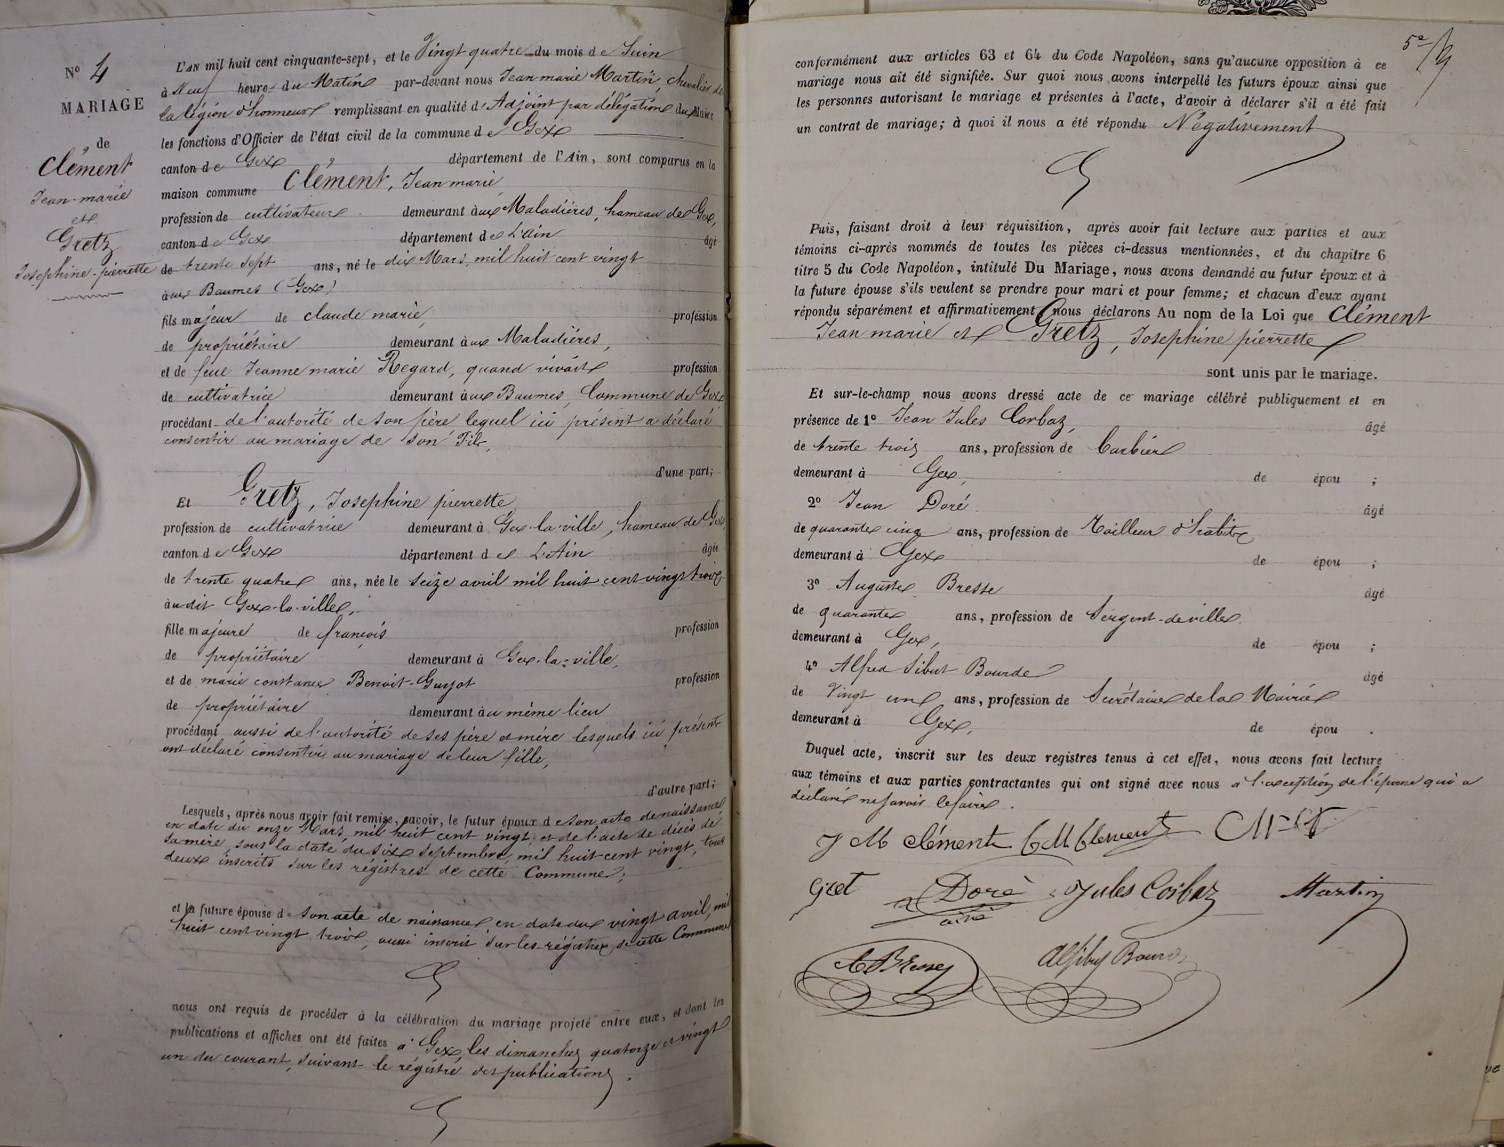 Nº 4
MARIAGE
de
Clément
Jean-marie
et
Gretz
Josephine-pierrette
L'an mil huit cent cinquante-sept, et le Vingt quatre du mois de Juin
à Neuf heures du Matin par-devant nous Jean marie Martin, chevalier de
la légion d'honneur remplissant en qualité d'Adjoint par délégation du Maire
les fonctions d'Officier de l'état civil de la commune de Gex
canton de Gex département de l'Ain, sont comparus en la
maison commune Clément, Jean marie
profession de cultivateur demeurant aux Maladières, hameau de Gex,
canton de Gex département de L'ain âgé
de trente sept ans, né le dix Mars, mil huit cent vingt
aux Baumes (Gex)
fils majeur de claude marie, profession
de propriétaire demeurant aux Maladières,
et de feue Jeanne marie Regard, quand vivait profession
de cultivatrice demeurant aux Baumes, Commune de Gex
procédant de l'autorité de son père lequel ici présent a déclaré
consentir au mariage de son fils,
d'une part;
Et Gretz, Josephine pierrette
profession de cultivatrice demeurant à Gex-la-ville, hameau de Gex,
canton de Gex département de L'Ain âgée
de trente quatre ans, née le Seize avril mil huit cent vingt trois
au dit Gex-la-ville,
fille majeure de françois profession
de propriétaire demeurant à Gex-la-ville,
et de marie constance Benoit-Guyot profession
de propriétaire demeurant au même lieu
procédant aussi de l'autorité de ses père et mère lesquels ici présent
ont déclaré consentir au mariage de leur fille,
d'autre part;
Lesquels, après nous avoir fait remise, savoir, le futur époux de son acte de naissance
en date du onze Mars, mil huit cent vingt, et de l'acte de décès de
sa mère, sous la date du six septembre, mil huit cent vingt, tous
deux inscrits sur les régistres de cette Commune;
et la future épouse de son acte de naissance en date du vingt avril, mil
huit cent vingt trois, aussi inscrit sur les régistres de cette Commune
nous ont requis de procéder à la célébration du mariage projeté entre eux, et dont les
publications et affiches ont été faites à Gex, les dimanches quatorze et vingt
un du courant, suivant le régistre des publications.
5e
conformément aux articles 63 et 64 du Code Napoléon, sans qu'aucune opposition à ce
mariage nous ait été signifiée. Sur quoi nous avons interpellé les futurs époux ainsi que
les personnes autorisant le mariage et présentes à l'acte, d'avoir à déclarer s'il a été fait
un contrat de mariage; à quoi il nous a été répondu Négativement
Puis, faisant droit à leur réquisition, après avoir fait lecture aux parties et aux
témoins ci-après nommés de toutes les pièces ci-dessus mentionnées, et du chapitre 6
titre 5 du Code Napoléon, intitulé Du Mariage, nous avons demandé au futur époux et à
la future épouse s'ils veulent se prendre pour mari et pour femme; et chacun d'eux ayant
répondu séparément et affirmativement nous déclarons Au nom de la Loi que Clément
Jean marie et Gretz, Josephine pierrette
sont unis par le mariage.
Et sur-le-champ nous avons dressé acte de ce mariage célébré publiquement et en
présence de 1º Jean Jules Corbaz, âgé
de trente trois ans, profession de Barbier
demeurant à Gex, de épou ;
2º Jean Doré âgé
de quarante cinq ans, profession de Tailleur d'habits
demeurant à Gex de épou ;
3º Auguste Bresse âgé
de quarante ans, profession de Sergent-de-ville
demeurant à Gex, de épou ;
4º Alfred Sibut Bourde âgé
de Vingt un ans, profession de Secrétaire de la Mairie
demeurant à Gex, de épou .
Duquel acte, inscrit sur les deux registres tenus à cet effet, nous avons fait lecture
aux témoins et aux parties contractantes qui ont signé avec nous à l'exception de l'épouse qui a
déclaré ne savoir le faire.
J M Clément C M Clement
Doré Jules Corbaz Martin
ainé
A Bresse